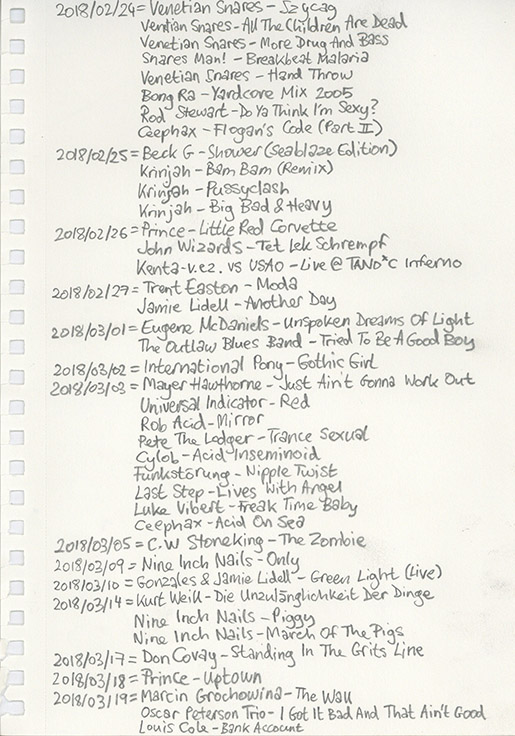 2018/02/24= Venetian Snares - Szycag
Ventian Snares - All The Children Are Dead
Venetian Snares - More Drug And Bass
Snares Man! - Breakbeat Malaria
Venetian Snares - Hand Throw
Bong Ra - Yardcore Mix 2005
Rod Stewart - Do Ya Think I'm Sexy?
Ceephax - Flogan's Code (Part II)
2018/02/25= Beck G - Shower (Seablaze Edition)
Krinjah - Bam Bam (Remix)
Krinjah - Pussyclash
Krinjah - Big Bad & Heavy
2018/02/26= Prince - Little Red Corvette
John Wizards - Tet Lek Schrempf
Kenta-v.ez. vs USAO - Live @ TANO*C Inferno
2018/02/27= Trent Easton - Moda
Jamie Lidell - Another Day
2018/03/01= Eugene McDaniels - Unspoken Dreams Of Light
The Outlaw Blues Band - Tried To Be A Good Boy
2018/03/02= International Pony - Gothic Girl
2018/03/03= Mayer Hawthorne - Just Ain't Gonna Work Out
Universal Indicator - Red
Rob Acid - Mirror
Pete The Lodger - Trance Sexual
Cylob - Acid Inseminoid
Funkstörung - Nipple Twist
Last Step - Lives With Angel
Luke Vibert - Freak Time Baby
Ceephax - Acid On Sea
2018/03/05= C.W Stoneking - The Zombie
2018/03/09= Nine Inch Nails - Only
2018/03/10= Gonzales & Jamie Lidell - Green Light (Live)
2018/03/14= Kurt Weill - Die Unzulänglichkeit Der Dinge
Nine Inch Nails - Piggy
Nine Inch Nails - March Of The Pigs
2018/03/17= Don Covay - Standing In The Grits Line
2018/03/18= Prince - Uptown
2018/03/19= Marcin Grochowina - The Wall
Oscar Peterson Trio - I Got It Bad And That Ain't Good
Louis Cole - Bank Account